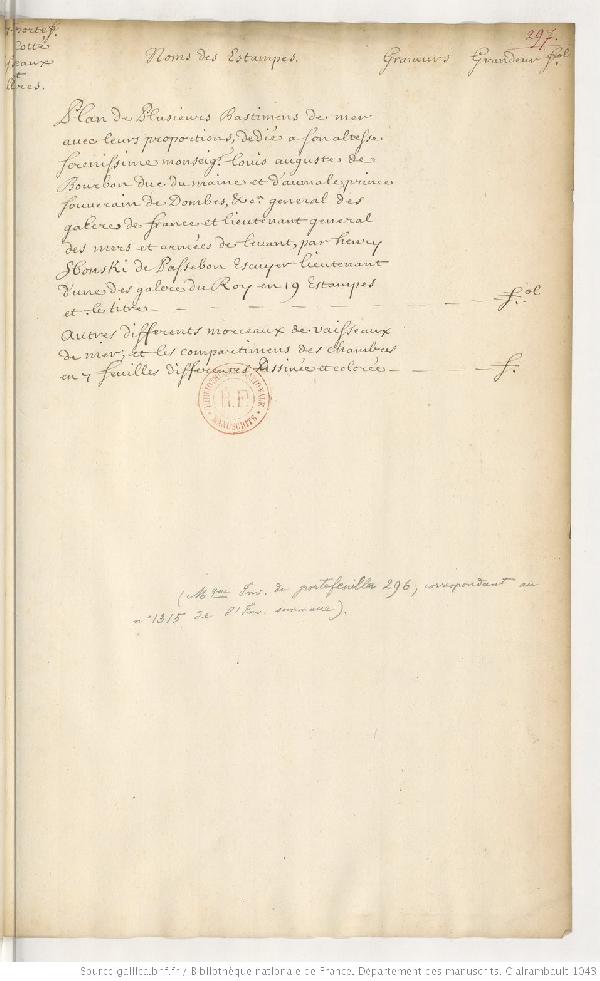 297.
Cotté
Noms des Estampes. Graveurs Grandeur fol
Plan de Plusieurs Bastimens de mer
avec leurs proportions, dedié a son altesse
serenissime monseigr. Louis auguste de
Bourbon duc du maine et d'aumale prince
souverain de Dombes, &ca. general des
galere de france et lieutenant general
des mers et armées de levant, par henry
Sbonski de Passebon Escuyer lieutenant
d'une des galere du Roy en 19 Estampes
et le titre — — — — — — fol.
Autres differents morceaux de vaisseaux
de mer, et les compartimens des chambres
en 7 feuilles differentes dessinée et colorée — — — — f.
BIBLIOTHEQUE NATIONALE
R.F.
MANUSCRITS
(Mque Inv. du portefeuille 296, correspondant au
n° 1315 de l'Inv. sommaire).
Source gallica.bnf.fr / Bibliothèque nationale de France. Département des manuscrits. Clairambault 1043